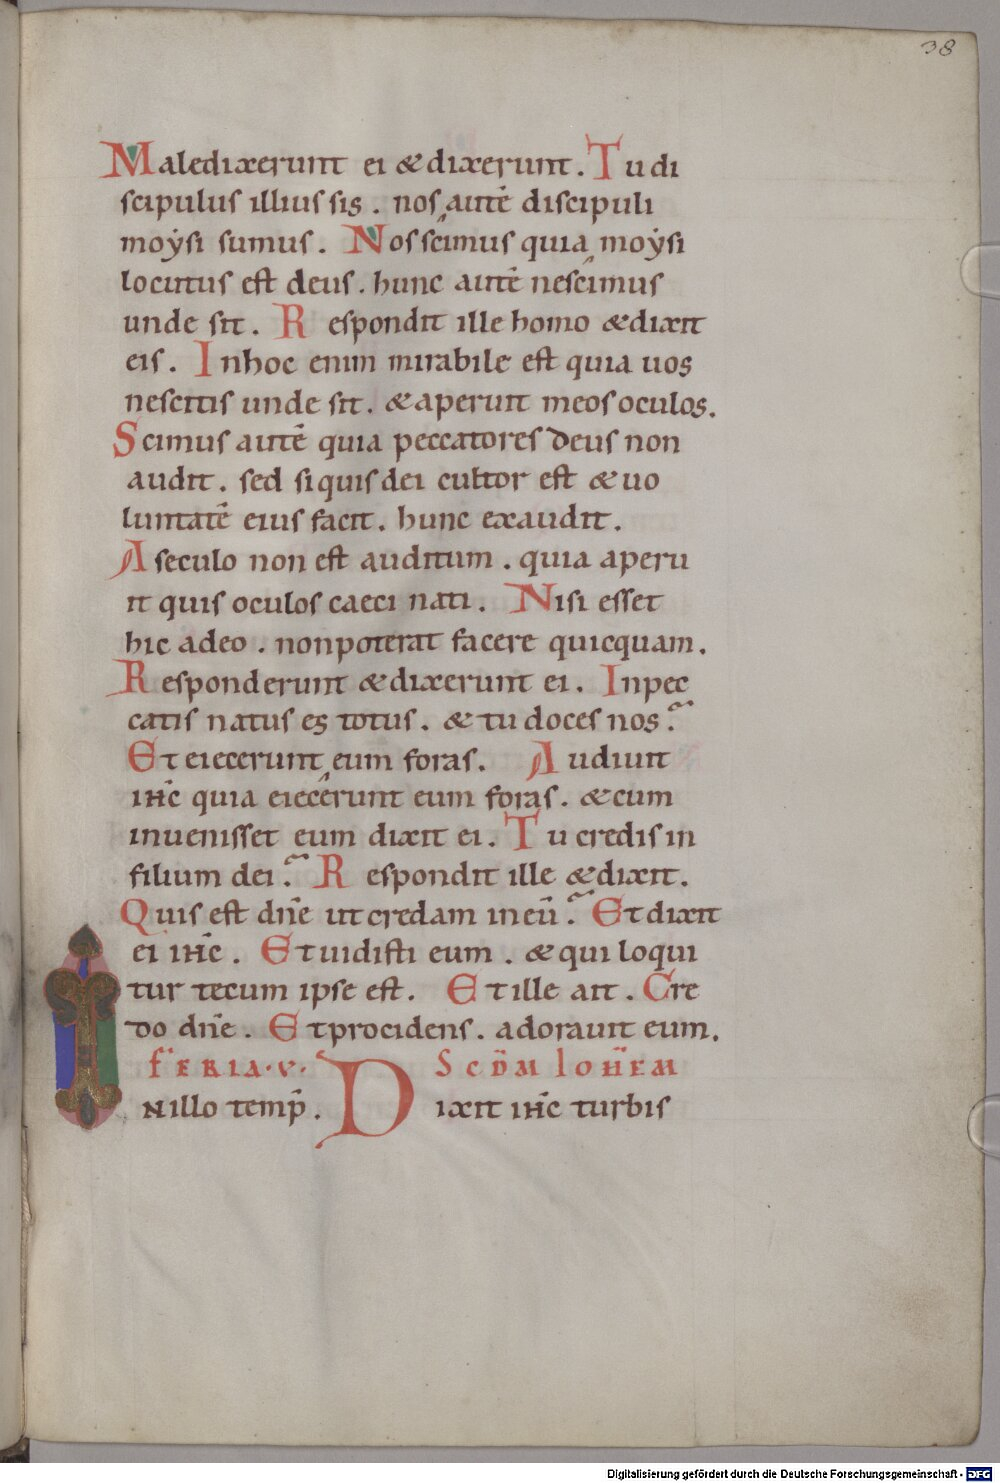 38
Maledixerunt ei & dixerunt. Tu di
scipulus illius sis. nos autē discipuli
moẏsi sumus. Nos scimus quia moẏsi
locutus est deus. hunc autē nescimus
unde sit. Respondit ille homo & dixit
eis. Inhoc enim mirabile est quia uos
nescitis unde sit. & aperuit meos oculos.
Scimus autē quia peccatores deus non
audit. sed siquis dei cultor est & uo
luntatē eius facit. hunc exaudit.
A seculo non est auditum. quia aperu
it quis oculos caeci nati. Nisi esset
hic adeo. nonpoterat facere quicquam.
Responderunt & dixerunt ei. Inpec
catis natus es totus. & tu doces nos?
Et eiecerunt eum foras. Audiuit
ihc̄ quia eiecerunt eum foras. & cum
inuenisset eum dixit ei. Tu credis in
filium dei? Respondit ille & dixit.
Quis est dn̄e ut credam in eū? Et dixit
ei ihc̄. Et uidisti eum. & qui loqui
tur tecum ipse est. Et ille ait. Cre
do dn̄e. Et procidens. adorauit eum.
FERIA·V· SCDM IOHEM
INillo temp̄. Dixit ihc̄ turbis
Digitalisierung gefördert durch die Deutsche Forschungsgemeinschaft - DFG